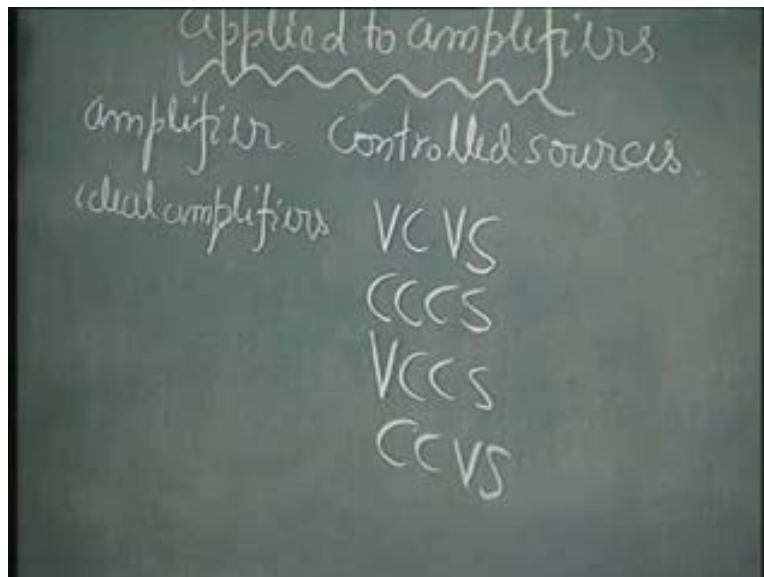 applied to amplifiers
amplifier controlled sources.
ideal amplifiers VCVS
CCCS
VCCS
CCVS